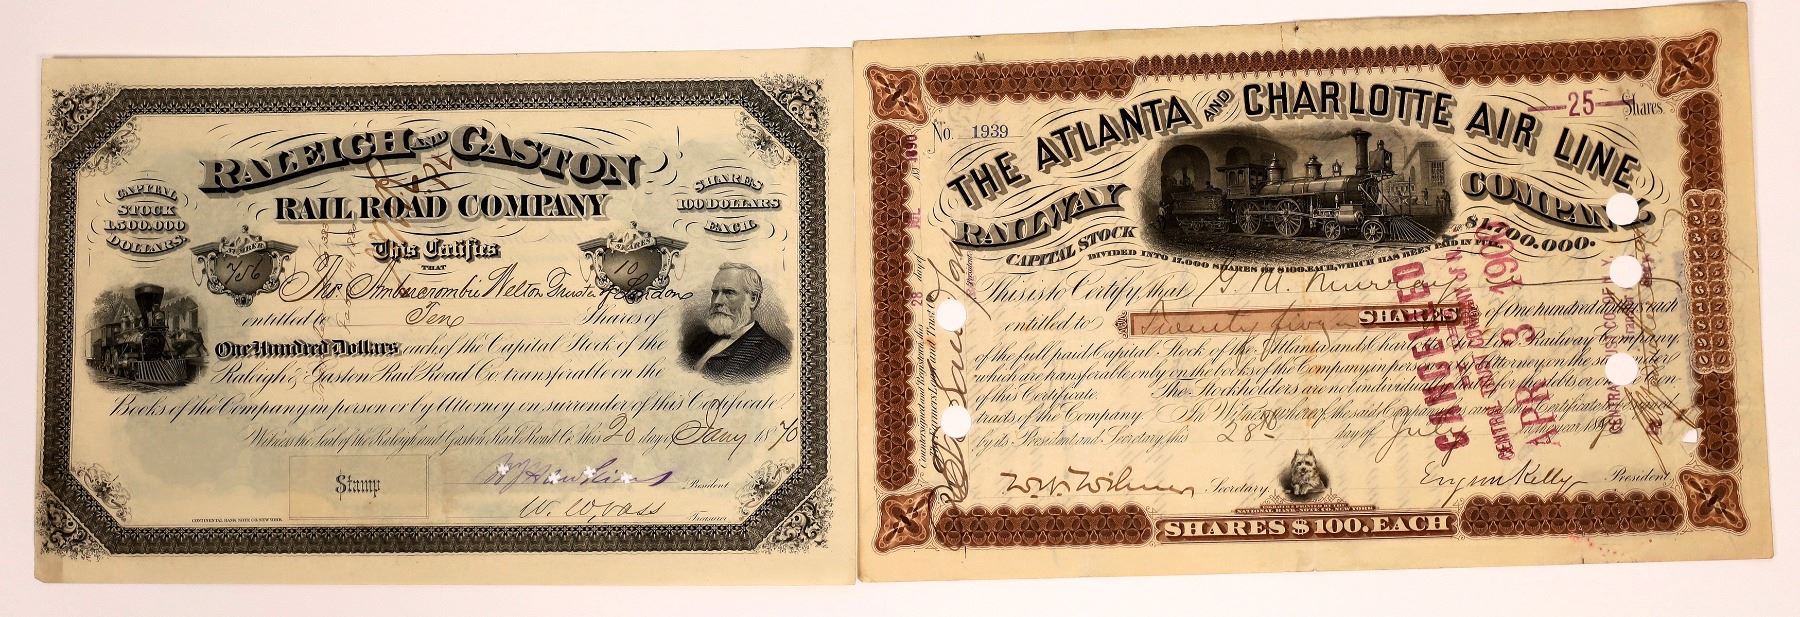 RALEIGH AND GASTON
RAIL ROAD COMPANY
CAPITAL
STOCK
1.500.000
DOLLARS.
SHARES
100 DOLLARS
EACH.
NUMBER
756
SHARES
10
This Certifies
THAT
Thos Ambercrombie Welton Trustee of London
entitled to Ten Shares of
One Hundred Dollars each of the Capital Stock of the
Raleigh & Gaston Rail Road Co. transferable on the
Books of the Company in person or by Attorney on surrender of this Certificate.
Witness the Seal of the Raleigh and Gaston Rail Road Co. this 20 day of Jany 1876
Stamp
President
W. W. Vass
Treasurer
CONTINENTAL BANK NOTE CO. NEW YORK.
No. 1939
25 Shares.
THE ATLANTA AND CHARLOTTE AIR LINE
RAILWAY COMPANY
CAPITAL STOCK $1,700.000.
DIVIDED INTO 17,000 SHARES OF $100. EACH, WHICH HAS BEEN PAID IN FULL.
This is to Certify that G. M. Murray
entitled to Twenty five SHARES of One hundred dollars each
of the full paid Capital Stock of the Atlanta and Charlotte Air Line Railway Company,
which are transferable only on the books of the Company, in person or by Attorney on the surrender
of this Certificate. The Stockholders are not individually liable for the debts or on the con-
tracts of the Company. In Witness whereof the said Company has caused this Certificate to be signed
by its President and Secretary this 28th day of July
Secretary
Eugene Kelly President
ENGRAVED & PRINTED BY THE
NATIONAL BANK NOTE CO. NEW YORK
SHARES $100. EACH
CANCELLED
CENTRAL UNION COMPANY OF N.Y.
APR 3 1908